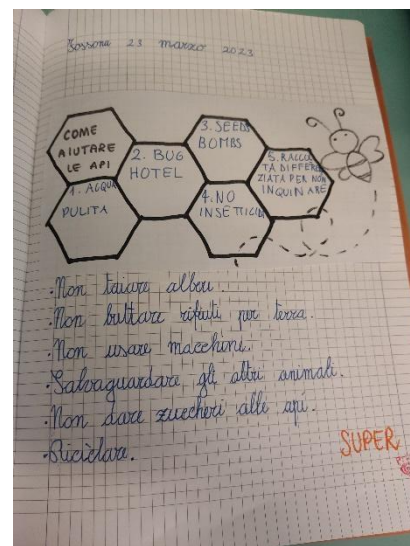 Sossano 23 marzo 2023
COME
AIUTARE
LE API
1. ACQUA
PULITA
2. BUG
HOTEL
3. SEEDS
BOMBS
4. NO
INSETTICIDI
5. RACCOL
TA DIFFEREN
ZIATA PER NON
INQUINARE
•Non taiare alberi.
•Non buttare rifiuti per terra.
•Non usare macchine.
•Salvaguardare gli altri animali.
•Non dare zuccheri alle api.
•Riciclare.
SUPER